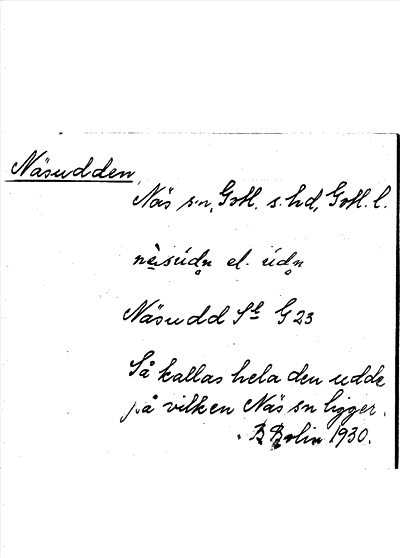 Näsudden,
Näs sn, Gotl. s. hd, Gotl. l.
nè̱súdn̥ el. údn̥
Näsudd Sk G 23
Så kallas hela den udde
på vilken Näs sn ligger.
B Bolin 1930.